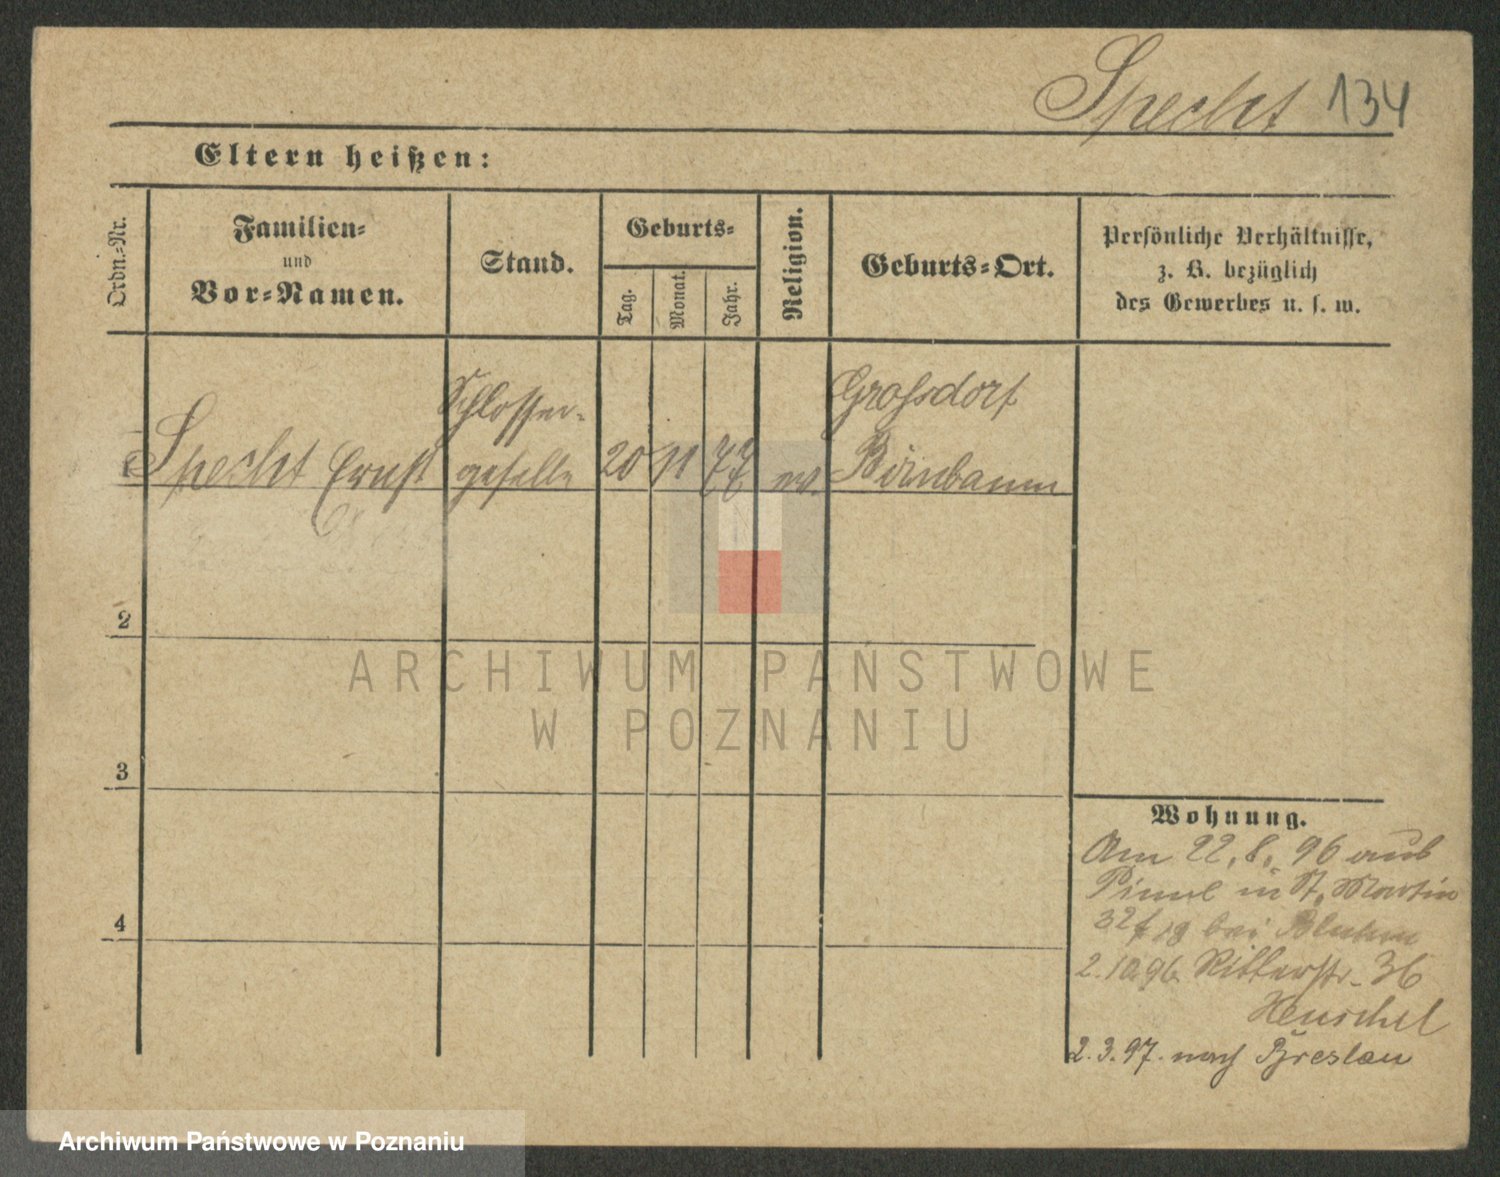 Specht 134
Eltern heißen:
Ordn.=Nr.
Familien=
und
Vor=Namen.
Stand.
Geburts=
Tag.
Monat.
Jahr.
Religion.
Geburts=Ort.
Persönliche Verhältnisse,
z. B. bezüglich
des Gewerbes u. s. w.
Schlosser-
Grossdorf
Specht Ernst geselle 20 11 77 ev. Birnbaum
2
3
4
Wohnung.
Am 22.8.96 aus
Pinne in St. Martin
32 bei
2.10.96 Ritterstr. 36
Henschel
2.3.97. nach Breslau
ARCHIWUM PAŃSTWOWE
W POZNANIU
Archiwum Państwowe w Poznaniu